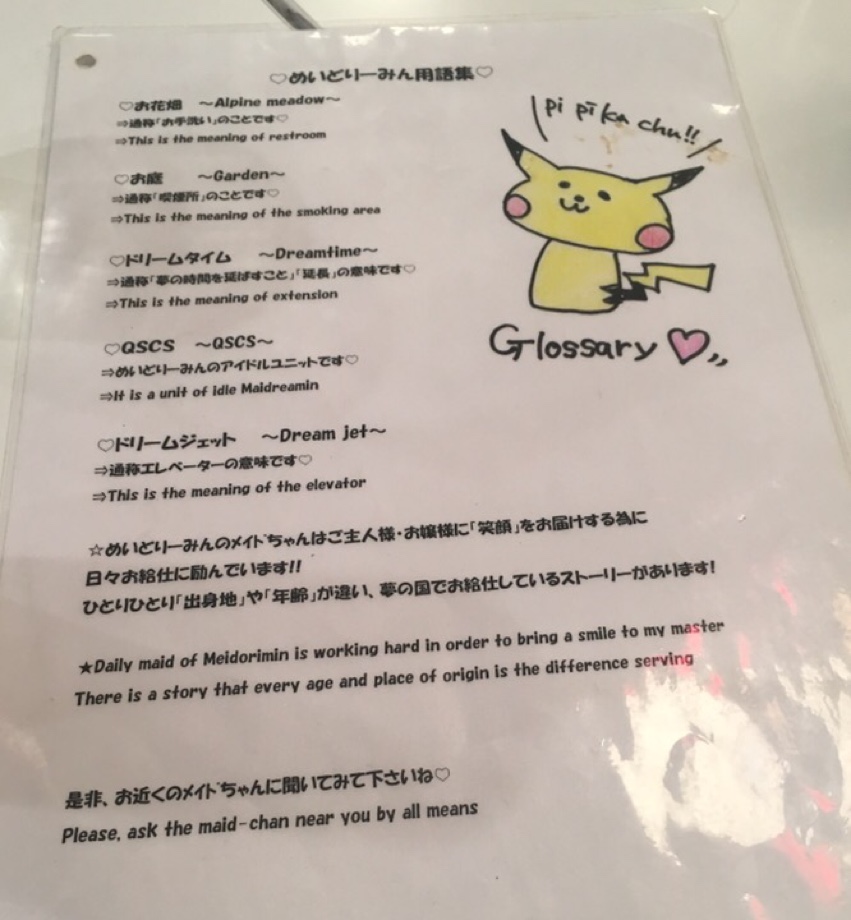 ♡めいどりーみん用語集♡
♡お花畑 ～Alpine meadow～
⇒通称「お手洗い」のことです♡
⇒This is the meaning of restroom
♡お庭 ～Garden～
⇒通称「喫煙所」のことです♡
⇒This is the meaning of the smoking area
♡ドリームタイム ～Dreamtime～
⇒通称「夢の時間を延ばすこと」「延長」の意味です♡
⇒This is the meaning of extension
♡QSCS ～QSCS～
⇒めいどりーみんのアイドルユニットです♡
⇒It is a unit of idle Maidreamin
♡ドリームジェット ～Dream jet～
⇒通称エレベーターの意味です♡
⇒This is the meaning of the elevator
pi pīka chu!!
Glossary ♡,,
☆めいどりーみんのメイドちゃんはご主人様・お嬢様に「笑顔」をお届けする為に
日々お給仕に励んでいます!!
ひとりひとり「出身地」や「年齢」が違い、夢の国でお給仕しているストーリーがあります!
★Daily maid of Meidorimin is working hard in order to bring a smile to my master
There is a story that every age and place of origin is the difference serving
是非、お近くのメイドちゃんに聞いてみて下さいね♡
Please, ask the maid-chan near you by all means